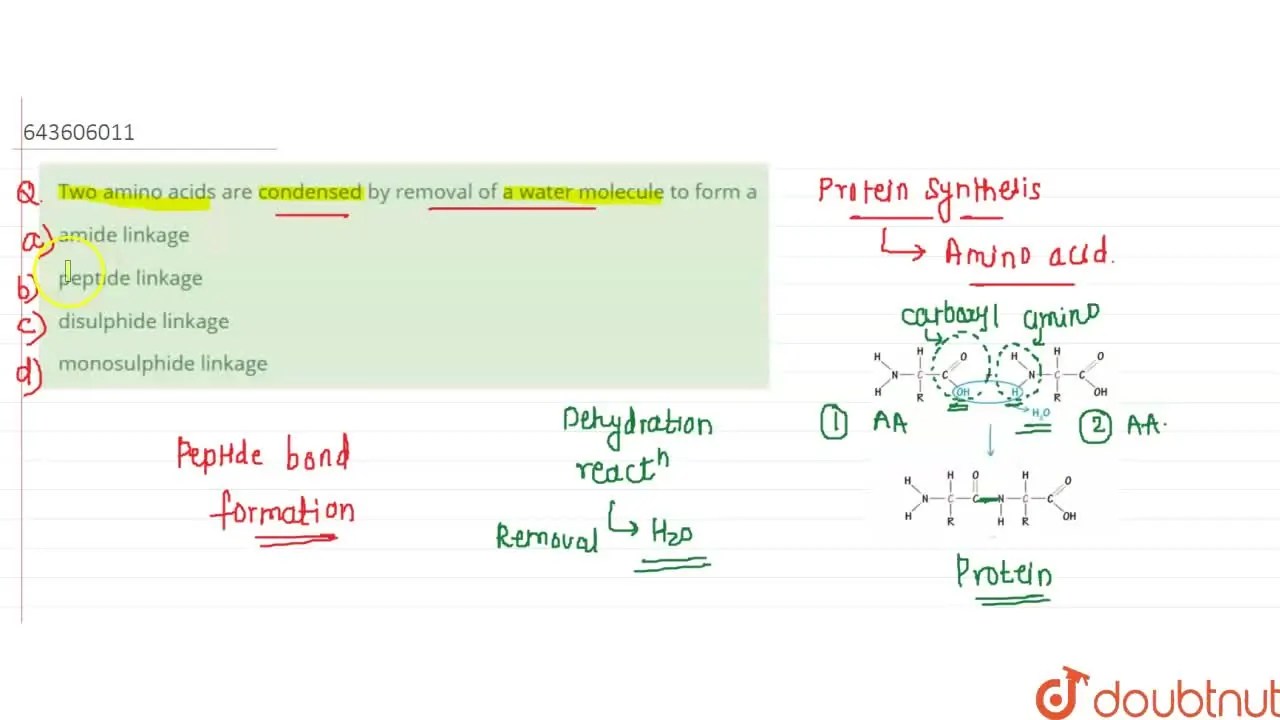 643606011
Q. Two amino acids are condensed by removal of a water molecule to form a
a) amide linkage
b) peptide linkage
c) disulphide linkage
d) monosulphide linkage
Peptide bond
formation
Dehydration
reactⁿ
Removal → H₂O
Protein Synthesis
→ Amino acid.
carboxyl amino
H H O H H O
N C C N C C
H R OH H R OH
H₂O
① AA ② AA.
H H O H O
N C C N C C
H R H R OH
Protein
doubtnut